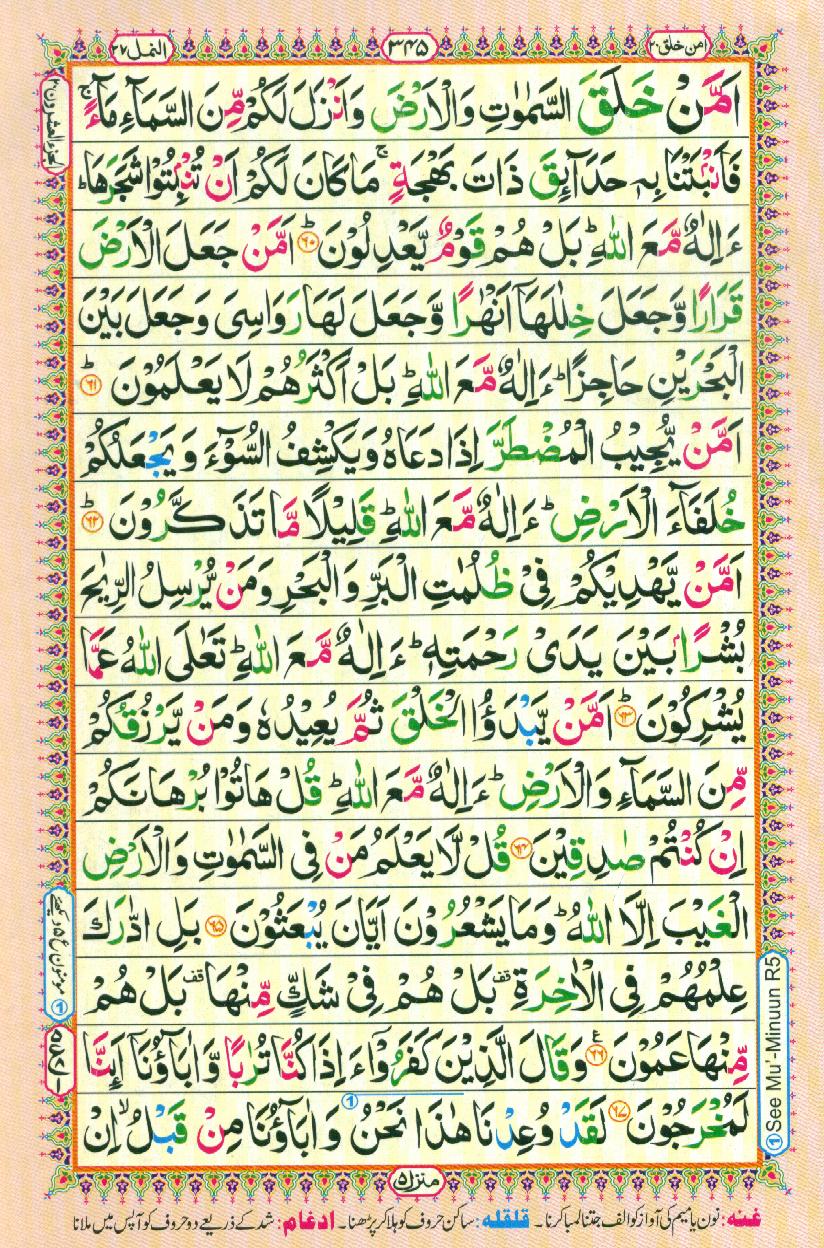 امن خلق ٢٠
٣٤٥
النمل ٢٧
اَمَّنْ خَلَقَ السَّمٰوٰتِ وَالْاَرْضَ وَاَنْزَلَ لَكُمْ مِّنَ السَّمَآءِ مَآءً ۚ
فَاَنْۢبَتْنَا بِهٖ حَدَآئِقَ ذَاتَ بَهْجَةٍ ۚ مَا كَانَ لَكُمْ اَنْ تُنْۢبِتُوْا شَجَرَهَا ؕ
ءَاِلٰهٌ مَّعَ اللّٰهِ ؕ بَلْ هُمْ قَوْمٌ يَّعْدِلُوْنَ ؕ ﴿۶۰﴾ اَمَّنْ جَعَلَ الْاَرْضَ
قَرَارًا وَّجَعَلَ خِلٰلَهَاۤ اَنْهٰرًا وَّجَعَلَ لَهَا رَوَاسِيَ وَجَعَلَ بَيْنَ
الْبَحْرَيْنِ حَاجِزًا ؕ ءَاِلٰهٌ مَّعَ اللّٰهِ ؕ بَلْ اَكْثَرُهُمْ لَا يَعْلَمُوْنَ ؕ ﴿۶۱﴾
اَمَّنْ يُّجِيْبُ الْمُضْطَرَّ اِذَا دَعَاهُ وَيَكْشِفُ السُّوْٓءَ وَيَجْعَلُكُمْ
خُلَفَآءَ الْاَرْضِ ؕ ءَاِلٰهٌ مَّعَ اللّٰهِ ؕ قَلِيْلًا مَّا تَذَكَّرُوْنَ ؕ ﴿۶۲﴾
اَمَّنْ يَّهْدِيْكُمْ فِيْ ظُلُمٰتِ الْبَرِّ وَالْبَحْرِ وَمَنْ يُّرْسِلُ الرِّيٰحَ
بُشْرًاۢ بَيْنَ يَدَيْ رَحْمَتِهٖ ؕ ءَاِلٰهٌ مَّعَ اللّٰهِ ؕ تَعٰلَى اللّٰهُ عَمَّا
يُشْرِكُوْنَ ؕ ﴿۶۳﴾ اَمَّنْ يَّبْدَؤُا الْخَلْقَ ثُمَّ يُعِيْدُهٗ وَمَنْ يَّرْزُقُكُمْ
مِّنَ السَّمَآءِ وَالْاَرْضِ ؕ ءَاِلٰهٌ مَّعَ اللّٰهِ ؕ قُلْ هَاتُوْا بُرْهَانَكُمْ
اِنْ كُنْتُمْ صٰدِقِيْنَ ﴿۶۴﴾ قُلْ لَّا يَعْلَمُ مَنْ فِي السَّمٰوٰتِ وَالْاَرْضِ
الْغَيْبَ اِلَّا اللّٰهُ ؕ وَمَا يَشْعُرُوْنَ اَيَّانَ يُبْعَثُوْنَ ﴿۶۵﴾ بَلِ ادّٰرَكَ
عِلْمُهُمْ فِي الْاٰخِرَةِ ۫ بَلْ هُمْ فِيْ شَكٍّ مِّنْهَا ۫ بَلْ هُمْ
مِّنْهَا عَمُوْنَ ﴿۶۶﴾ وَقَالَ الَّذِيْنَ كَفَرُوْۤا ءَاِذَا كُنَّا تُرٰبًا وَّاٰبَآؤُنَاۤ اَئِنَّا
لَمُخْرَجُوْنَ ﴿۶۷﴾ لَقَدْ وُعِدْنَا هٰذَا نَحْنُ وَاٰبَآؤُنَا مِنْ قَبْلُ ۙ اِنْ
منزل ٥
① See Mu'-Minuun R5
غنه: نون یا میم کی آواز کو الف جتنا لمبا کرنا۔ قلقله: ساکن حروف کو ہلا کر پڑھنا۔ ادغام: شد کے ذریعے دو حروف کو آپس میں ملانا